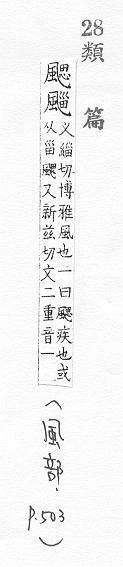 28
類篇
颸
叉緇切博雅風也一曰颸疾也或
从甾颸又新兹切文二重音一
(風部, p.503)